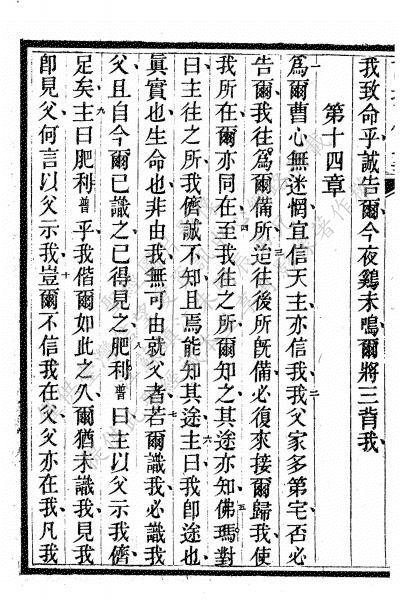 我致命乎誠告爾今夜鷄未鳴爾將三背我
第十四章
一爲爾曹心無迷惘宜信天主亦信我二我父家多第宅否必
告爾我往爲爾備所三迨往後所旣備必復來接爾歸我使
我所在爾亦同在四至我往之所爾知之其途亦知五佛瑪對
曰主往之所我儕誠不知且焉能知其途六主曰我卽途也
眞實也生命也非由我無可由就父者七若爾識我必識我
父且自今爾已識之已得見之八肥利普曰主以父示我儕
足矣九主曰肥利普乎我偕爾如此之久爾猶未識我見我
卽見父何言以父示我十豈爾不信我在父父亦在我凡我